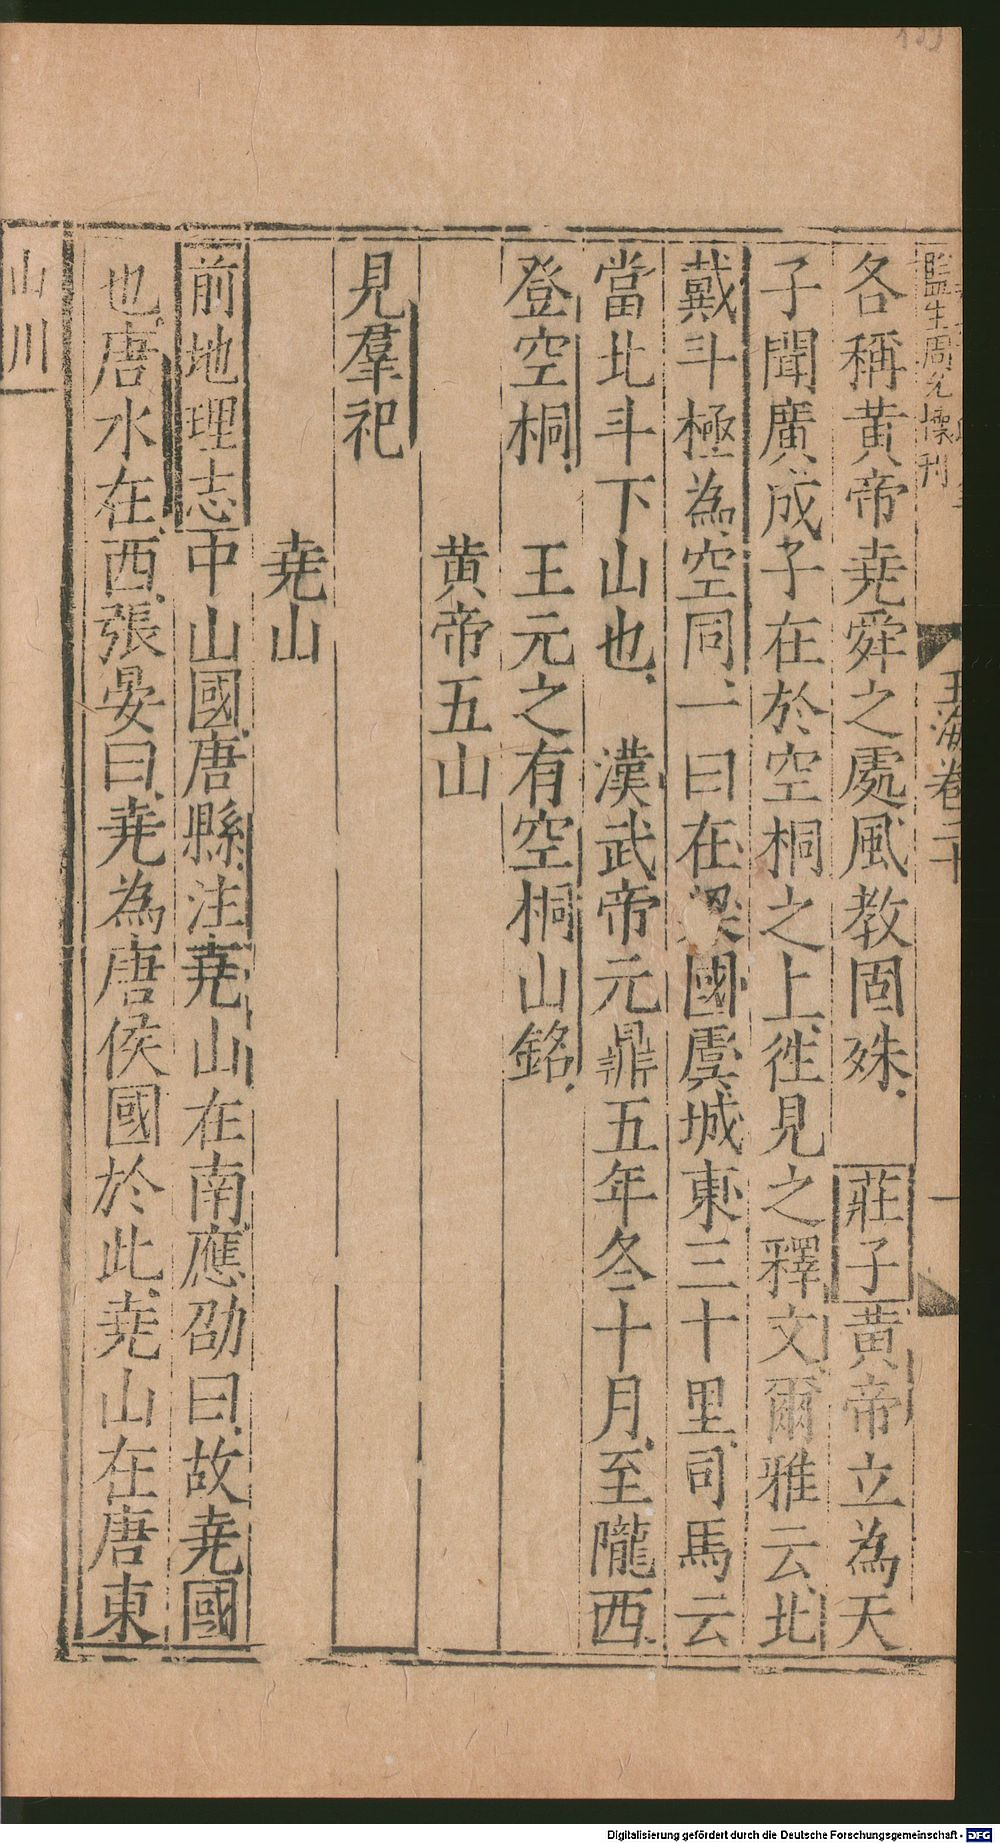 監生周允懷刊
玉海卷二十
一
各稱黄帝堯舜之處風教固殊 莊子黄帝立為天
子聞廣成子在於空桐之上徃見之釋文爾雅云北
戴斗極為空同一曰在梁國虞城東三十里司馬云
當北斗下山也 漢武帝元鼎五年冬十月至隴西
登空桐 王元之有空桐山銘
黄帝五山
見羣祀
堯山
前地理志中山國唐縣注堯山在南應劭曰故堯國
也唐水在西張晏曰堯為唐侯國於此堯山在唐東
山川
Digitalisierung gefördert durch die Deutsche Forschungsgemeinschaft - DFG